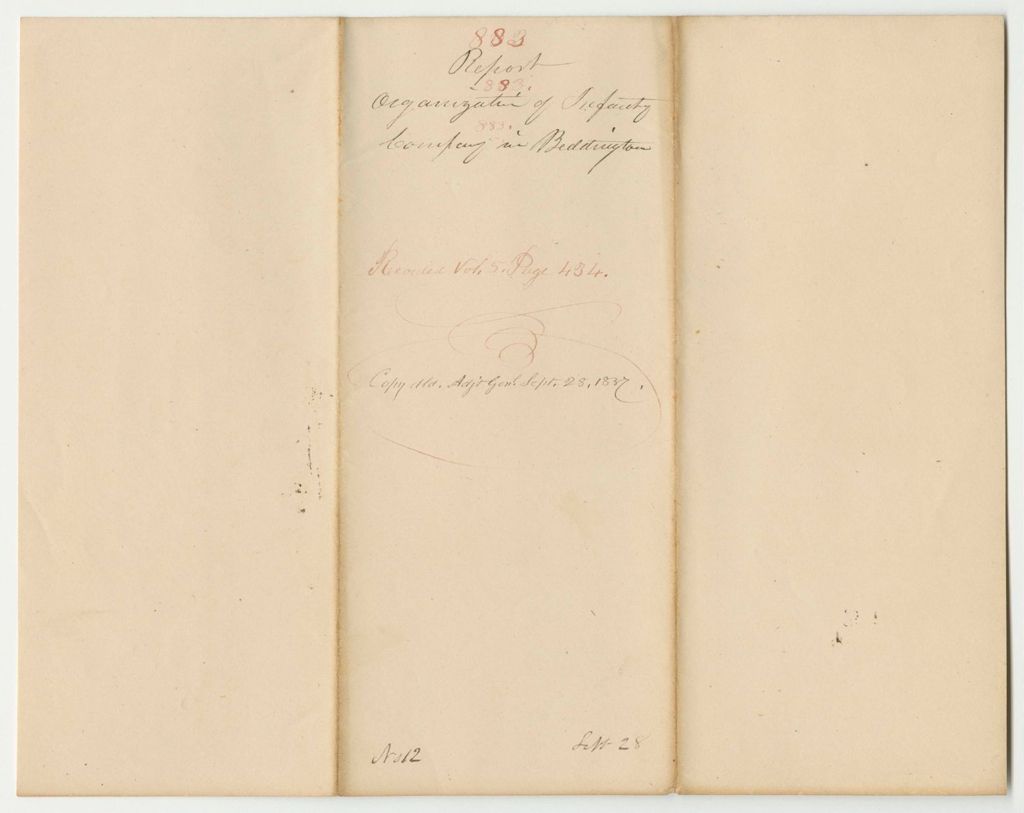 883
Report
883.
Organization of Infantry
883.
Company in Beddington
Recorded Vol. 5. Page 434.
Copy dld. Adjt Genl. Sept. 28, 1837.
No 12
Sept 28